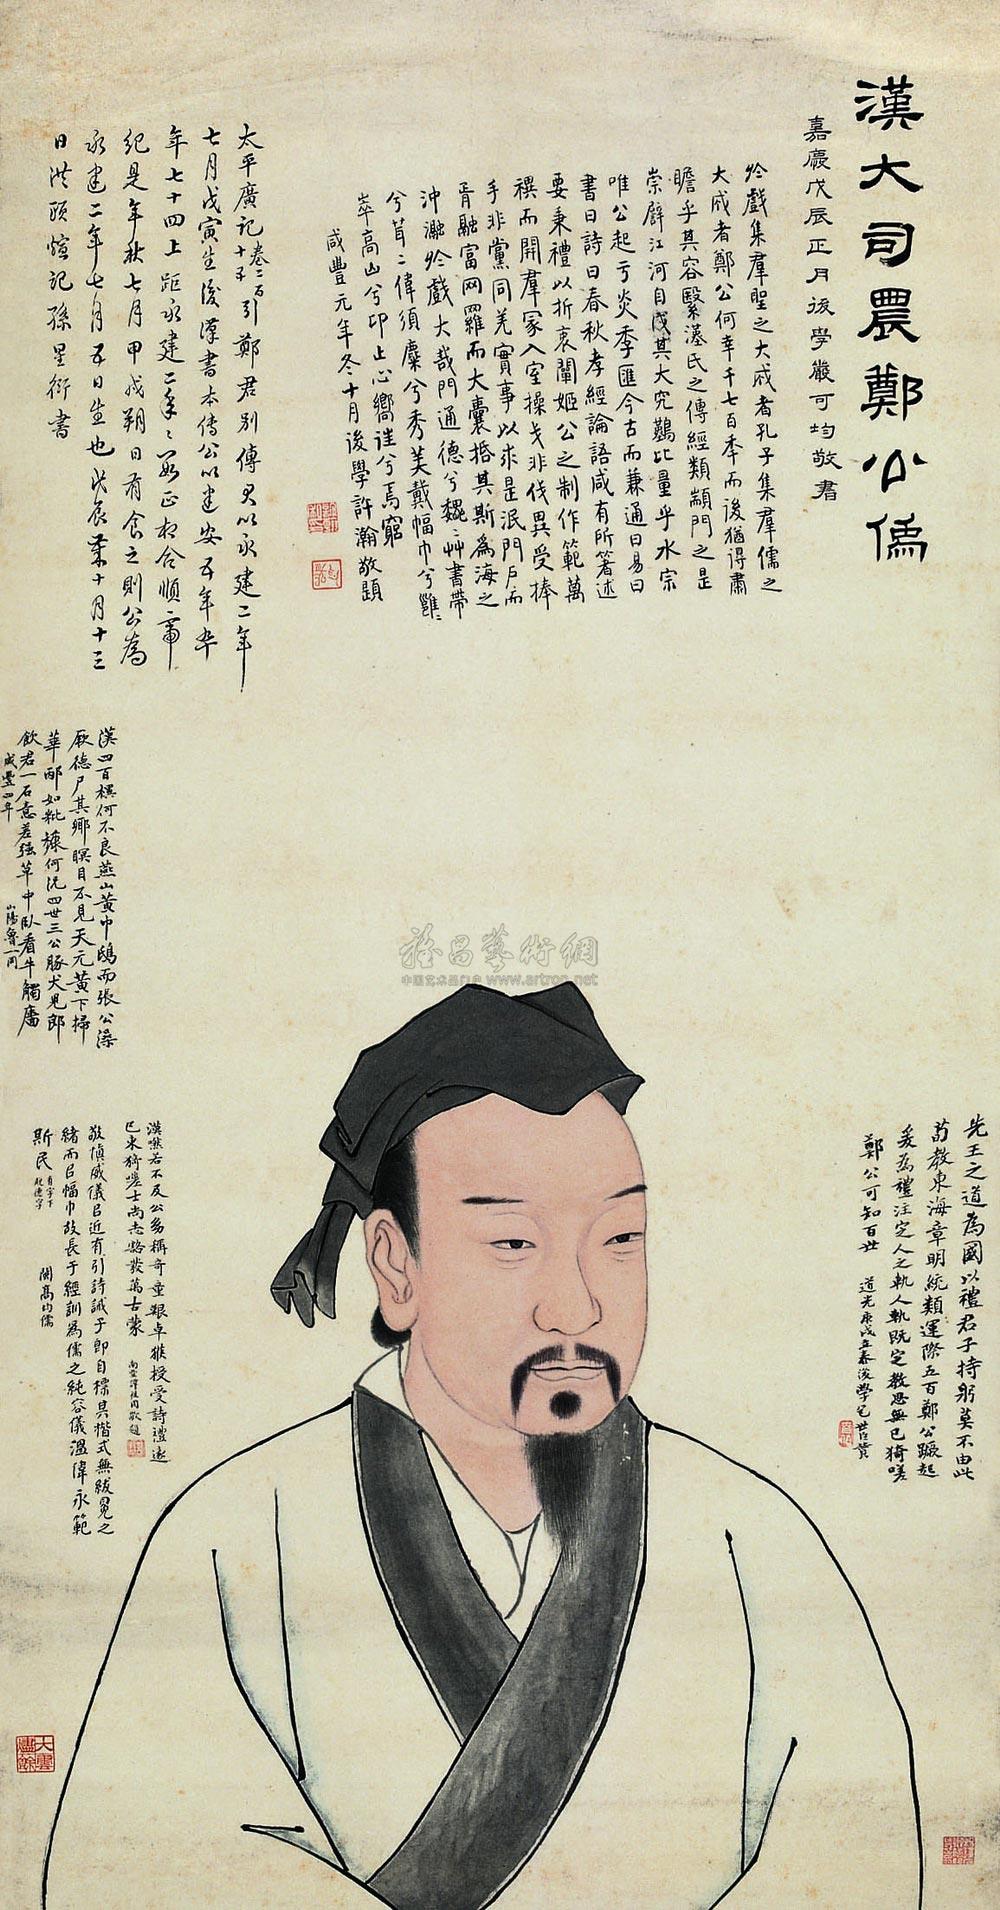 漢大司農鄭公像
嘉慶戊辰正月後學嚴可均敬書
於戲集羣聖之大成者孔子集羣儒之
大成者鄭公何幸千七百年而後猶得肅
瞻乎其容繄漢氏之傳經類顓門之是
崇辟江河自成其大究鸛比量乎水宗
唯公起亏炎季匯今古而兼通曰易曰
書曰詩曰春秋孝經論語咸有所箸述
要秉禮以折衷闡姬公之制作範萬
禩而開羣冢入室操戈非伐異受捧
手非黨同羌實事以求是泯門戶而
胥融富网羅而大囊括其斯為海之
沖瀜於戲大哉門通德兮巍巍艸書帶
兮茸二偉須麋兮秀美戴幅巾兮雝二
萃高山兮卬止心嚮往兮焉窮
咸豐元年冬十月後學許瀚敬題
太平廣記卷二百十五引鄭君別傳君以永建二年
七月戊寅生後漢書本傳公以建安五年卒
年七十四上距永建二年年數正相合順帝
紀是年秋七月甲戌朔日有食之則公為
永建二年七月五日生也戊辰業十月十三
日洪頤煊記孫星衍書
漢四百祺何不良燕山黃巾鴟而張公澡
厥德尸其鄉瞑目不見天元黃下掃
華邴如秕穅何況四世三公豚犬兒郎
飲君一石意差强草中臥看牛觸牆
咸豐四年
山陽魯一同
漢燕若不及公多稱奇童艱卓猴授受詩禮遠
已來猗嗟士尚志豁發萬古蒙
敬慎威儀㠯近有引詩誡子即自標其楷式無紱冕之
緒而㠯幅巾故長于經訓為儒之純容儀溫偉永範
斯民
先王之道為國以禮君子持躬莫不由此
荀教東海章明統類運際五百鄭公蹶起
爰為禮注定人之執人執既定教思無已猗嗟
鄭公可知百世
道光庚戌立春後學包世臣贊
大雲燼餘